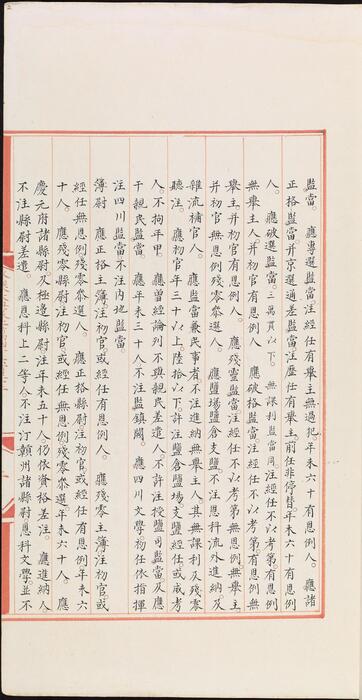 監當。應專選監當注經任有舉主無過犯年未六十有恩例人。應諸
正格監當。并京選通差監當注歷任有舉主。前任非停替。年未六十有恩例
人。應破選監當。三萬貫以下。無課利監當同。注經任不以考第。有恩例
無舉主人并初官有恩例人。應破格監當注經任不以考第。有恩例無
舉主并初官有恩例人。應殘零監當注經任不以考第無恩例無舉主
并初官無恩例殘零叅選人。應鹽場鹽倉支鹽不注恩科流外進納及
雜流補官人。應監當兼民事者不注進納無舉主人其無課利及殘零
聽注。應初官年三十以上陸拾以下。許注鹽倉鹽場支鹽經任或成考
人。不拘年甲。應曾經論列不與親民差遣人。不許注授鹽司監當及應
干親民監當。應年未三十人不注監鎮闕。應四川文學。初任依指揮
注四川監當不注內地監當
簿尉。應正格主簿注初官或經任有恩例人。應殘零主簿注初官或
經任無恩例殘零叅選人。應正格縣尉注初官或經任有恩例年未六
十人。應殘零縣尉注初官或經任無恩例殘零叅選年未六十人。應
慶元府諸縣尉及極邊縣尉注年未五十人仍依資格差注。應進納人
不注縣尉差遣。應恩科上二等人不注汀贛州諸縣尉恩科文學。並不